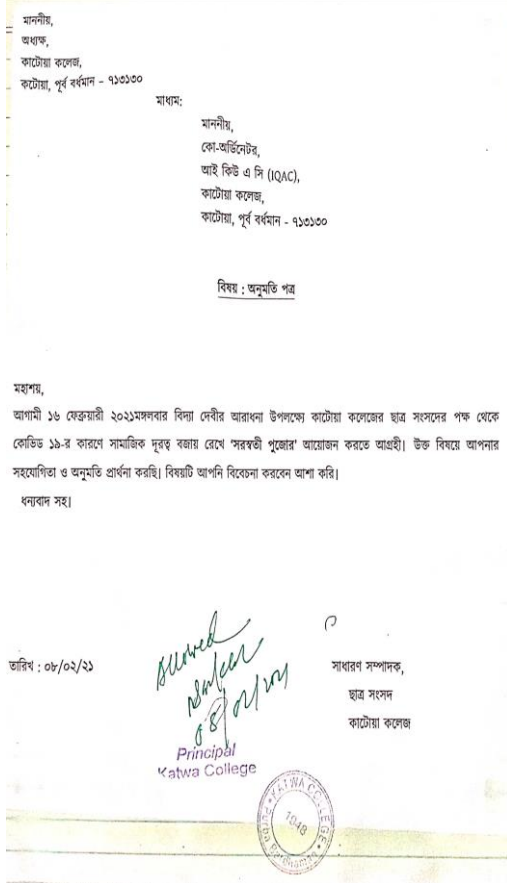 মাননীয়,
অধ্যক্ষ,
কাটোয়া কলেজ,
কটোয়া, পূর্ব বর্ধমান – ৭১৩১৩০
মাধ্যম:
মাননীয়,
কো-অর্ডিনেটর,
আই কিউ এ সি (IQAC),
কাটোয়া কলেজ,
কাটোয়া, পূর্ব বর্ধমান - ৭১৩১৩০
বিষয় : অনুমতি পত্র
মহাশয়,
আগামী ১৬ ফেব্রুয়ারী ২০২১মঙ্গলবার বিদ্যা দেবীর আরাধনা উপলক্ষ্যে কাটোয়া কলেজের ছাত্র সংসদের পক্ষ থেকে
কোভিড ১৯-র কারণে সামাজিক দূরত্ব বজায় রেখে 'সরস্বতী পুজোর' আয়োজন করতে আগ্রহী। উক্ত বিষয়ে আপনার
সহযোগিতা ও অনুমতি প্রার্থনা করছি। বিষয়টি আপনি বিবেচনা করবেন আশা করি।
ধন্যবাদ সহ।
Allowed
তারিখ : ০৮/০২/২১
সাধারণ সম্পাদক,
ছাত্র সংসদ
কাটোয়া কলেজ
Principal
Katwa College
KATWA COLLEGE
1948
Purba Bardhaman